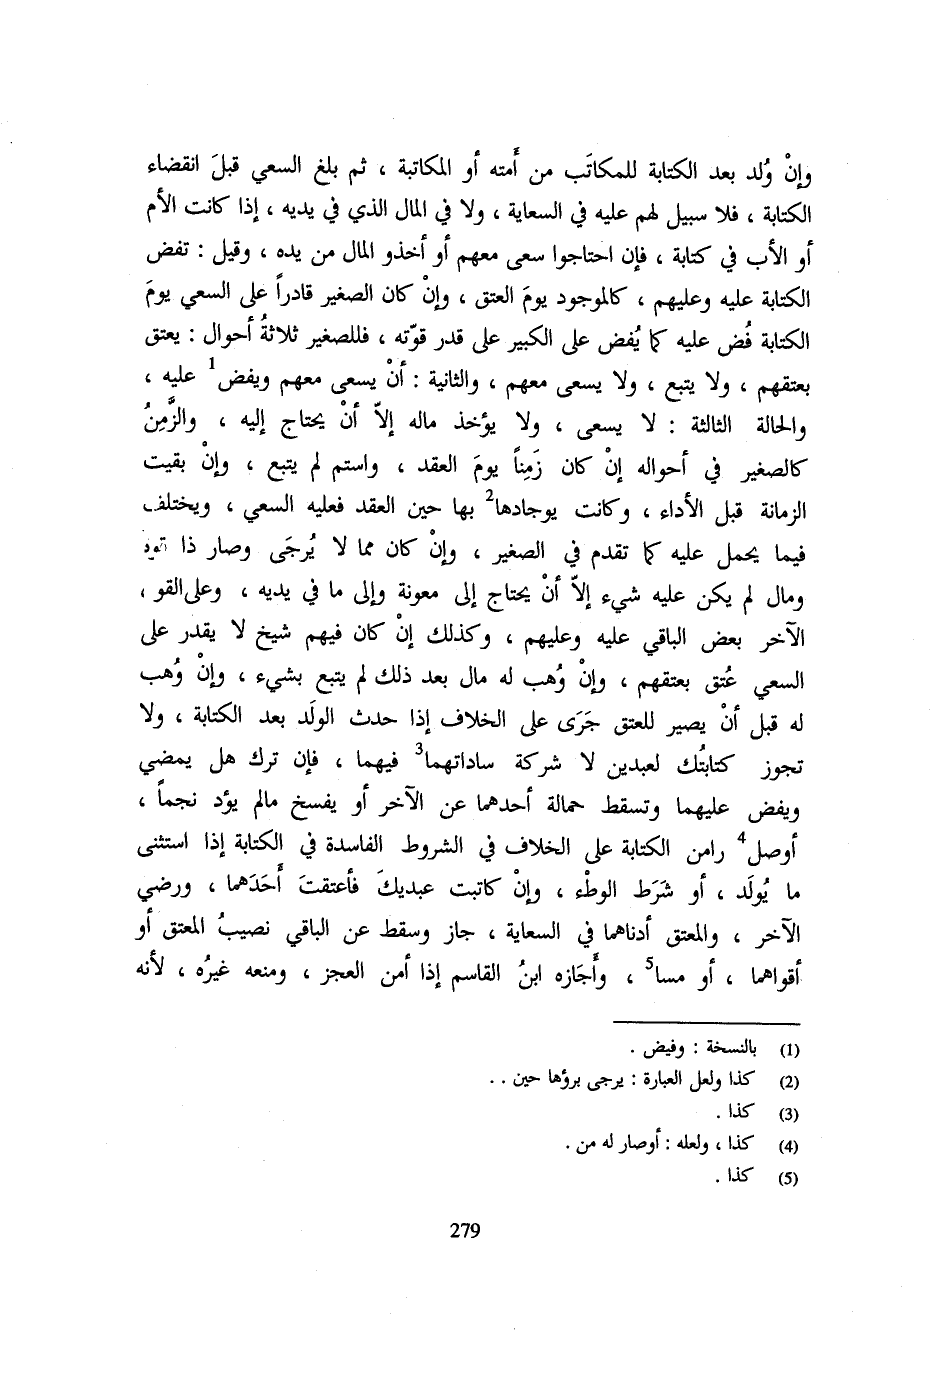 وإنْ وُلد بعد الكتابة للمكاتَب من أَمته أو المكاتبة ، ثم بلغ السعي قبلَ انقضاء
الكتابة ، فلا سبيل لهم عليه في السعاية ، ولا في المال الذي في يديه ، إذا كانت الأم
أو الأب في كتابة ، فإن احتاجوا سعى معهم أو أخذو المال من يده ، وقيل : تفض
الكتابة عليه وعليهم ، كالموجود يومَ العتق ، وإنْ كان الصغير قادراً على السعي يومَ
الكتابة فُض عليه كما يُفض على الكبير على قدر قوّته ، فللصغير ثلاثةُ أحوال : يعتق
بعتقهم ، ولا يتبع ، ولا يسعى معهم ، والثانية : أنْ يسعى معهم ويفض1 عليه ،
والحالة الثالثة : لا يسعى ، ولا يؤخذ ماله إلاّ أنْ يحتاج إليه ، والزَّمِنُ
كالصغير في أحواله إنْ كان زَمِناً يومَ العقد ، واستم لم يتبع ، وإنْ بقيت
الزمانة قبل الأداء ، وكانت يوجادها2 بها حين العقد فعليه السعي ، ويختلف
فيما يحمل عليه كما تقدم في الصغير ، وإنْ كان مما لا يُرجَى وصار ذا
ومال لم يكن عليه شيء إلاّ أنْ يحتاج إلى معونة وإلى ما في يديه ، وعلى القو ،
الآخر بعض الباقي عليه وعليهم ، وكذلك إنْ كان فيهم شيخ لا يقدر على
السعي عُتق بعتقهم ، وإنْ وُهب له مال بعد ذلك لم يتبع بشيء ، وإنْ وُهب
له قبل أنْ يصير للعتق جَرَى على الخلاف إذا حدث الولَد بعد الكتابة ، ولا
تجوز كتابتُك لعبدين لا شركة ساداتهما3 فيهما ، فإن ترك هل يمضي
ويفض عليهما وتسقط حمالة أحدهما عن الآخر أو يفسخ مالم يؤد نجماً ،
أوصل4 رامن الكتابة على الخلاف في الشروط الفاسدة في الكتابة إذا استثنى
ما يُولَد ، أو شَرَط الوطْء ، وإنْ كاتبت عبديكَ فأعتقتَ أَحَدَهما ، ورضي
الآخر ، والمعتق أدناهما في السعاية ، جاز وسقط عن الباقي نصيبُ المعتق أو
أقواهما ، أو مسا5 ، وأَجَازه ابنُ القاسم إذا أمن العجز ، ومنعه غيرُه ، لأنه
(1) بالنسخة : وفيض .
(2) كذا ولعل العبارة : يرجى برؤها حين . .
(3) كذا .
(4) كذا ، ولعله : أوصار له من .
(5) كذا .
279